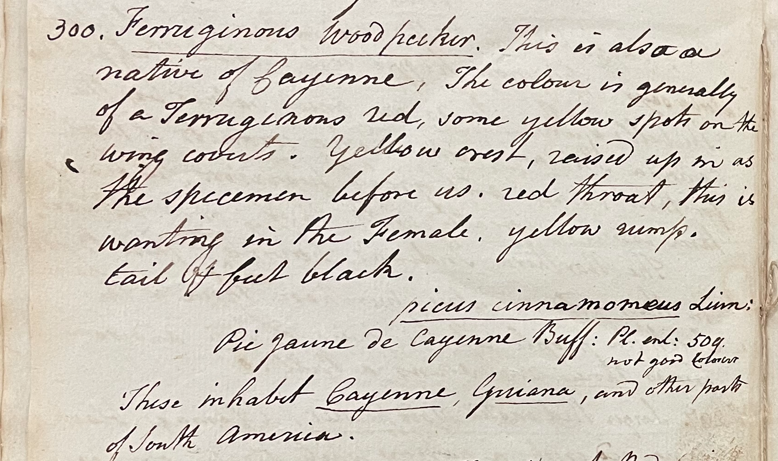 300. Ferruginous Woodpecker. This is also a
native of Cayenne, The colour is generally
of a Ferruginous red, some yellow spots on the
wing coverts. Yellow crest, raised up in as
the specemen before us. red throat, this is
wanting in the Female. yellow rump.
tail & feet black.
picus cinnamomeus Linn:
Pic jaune de Cayenne Buff: Pl. enl: 509.
not good colour
These inhabit Cayenne, Guiana, and other parts
of South America.